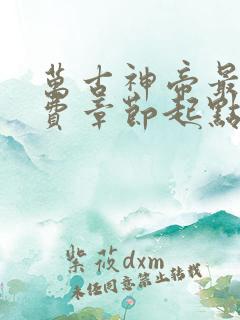 萬古神帝最
費章節起點
紫筱dxm
未经同意禁止转载